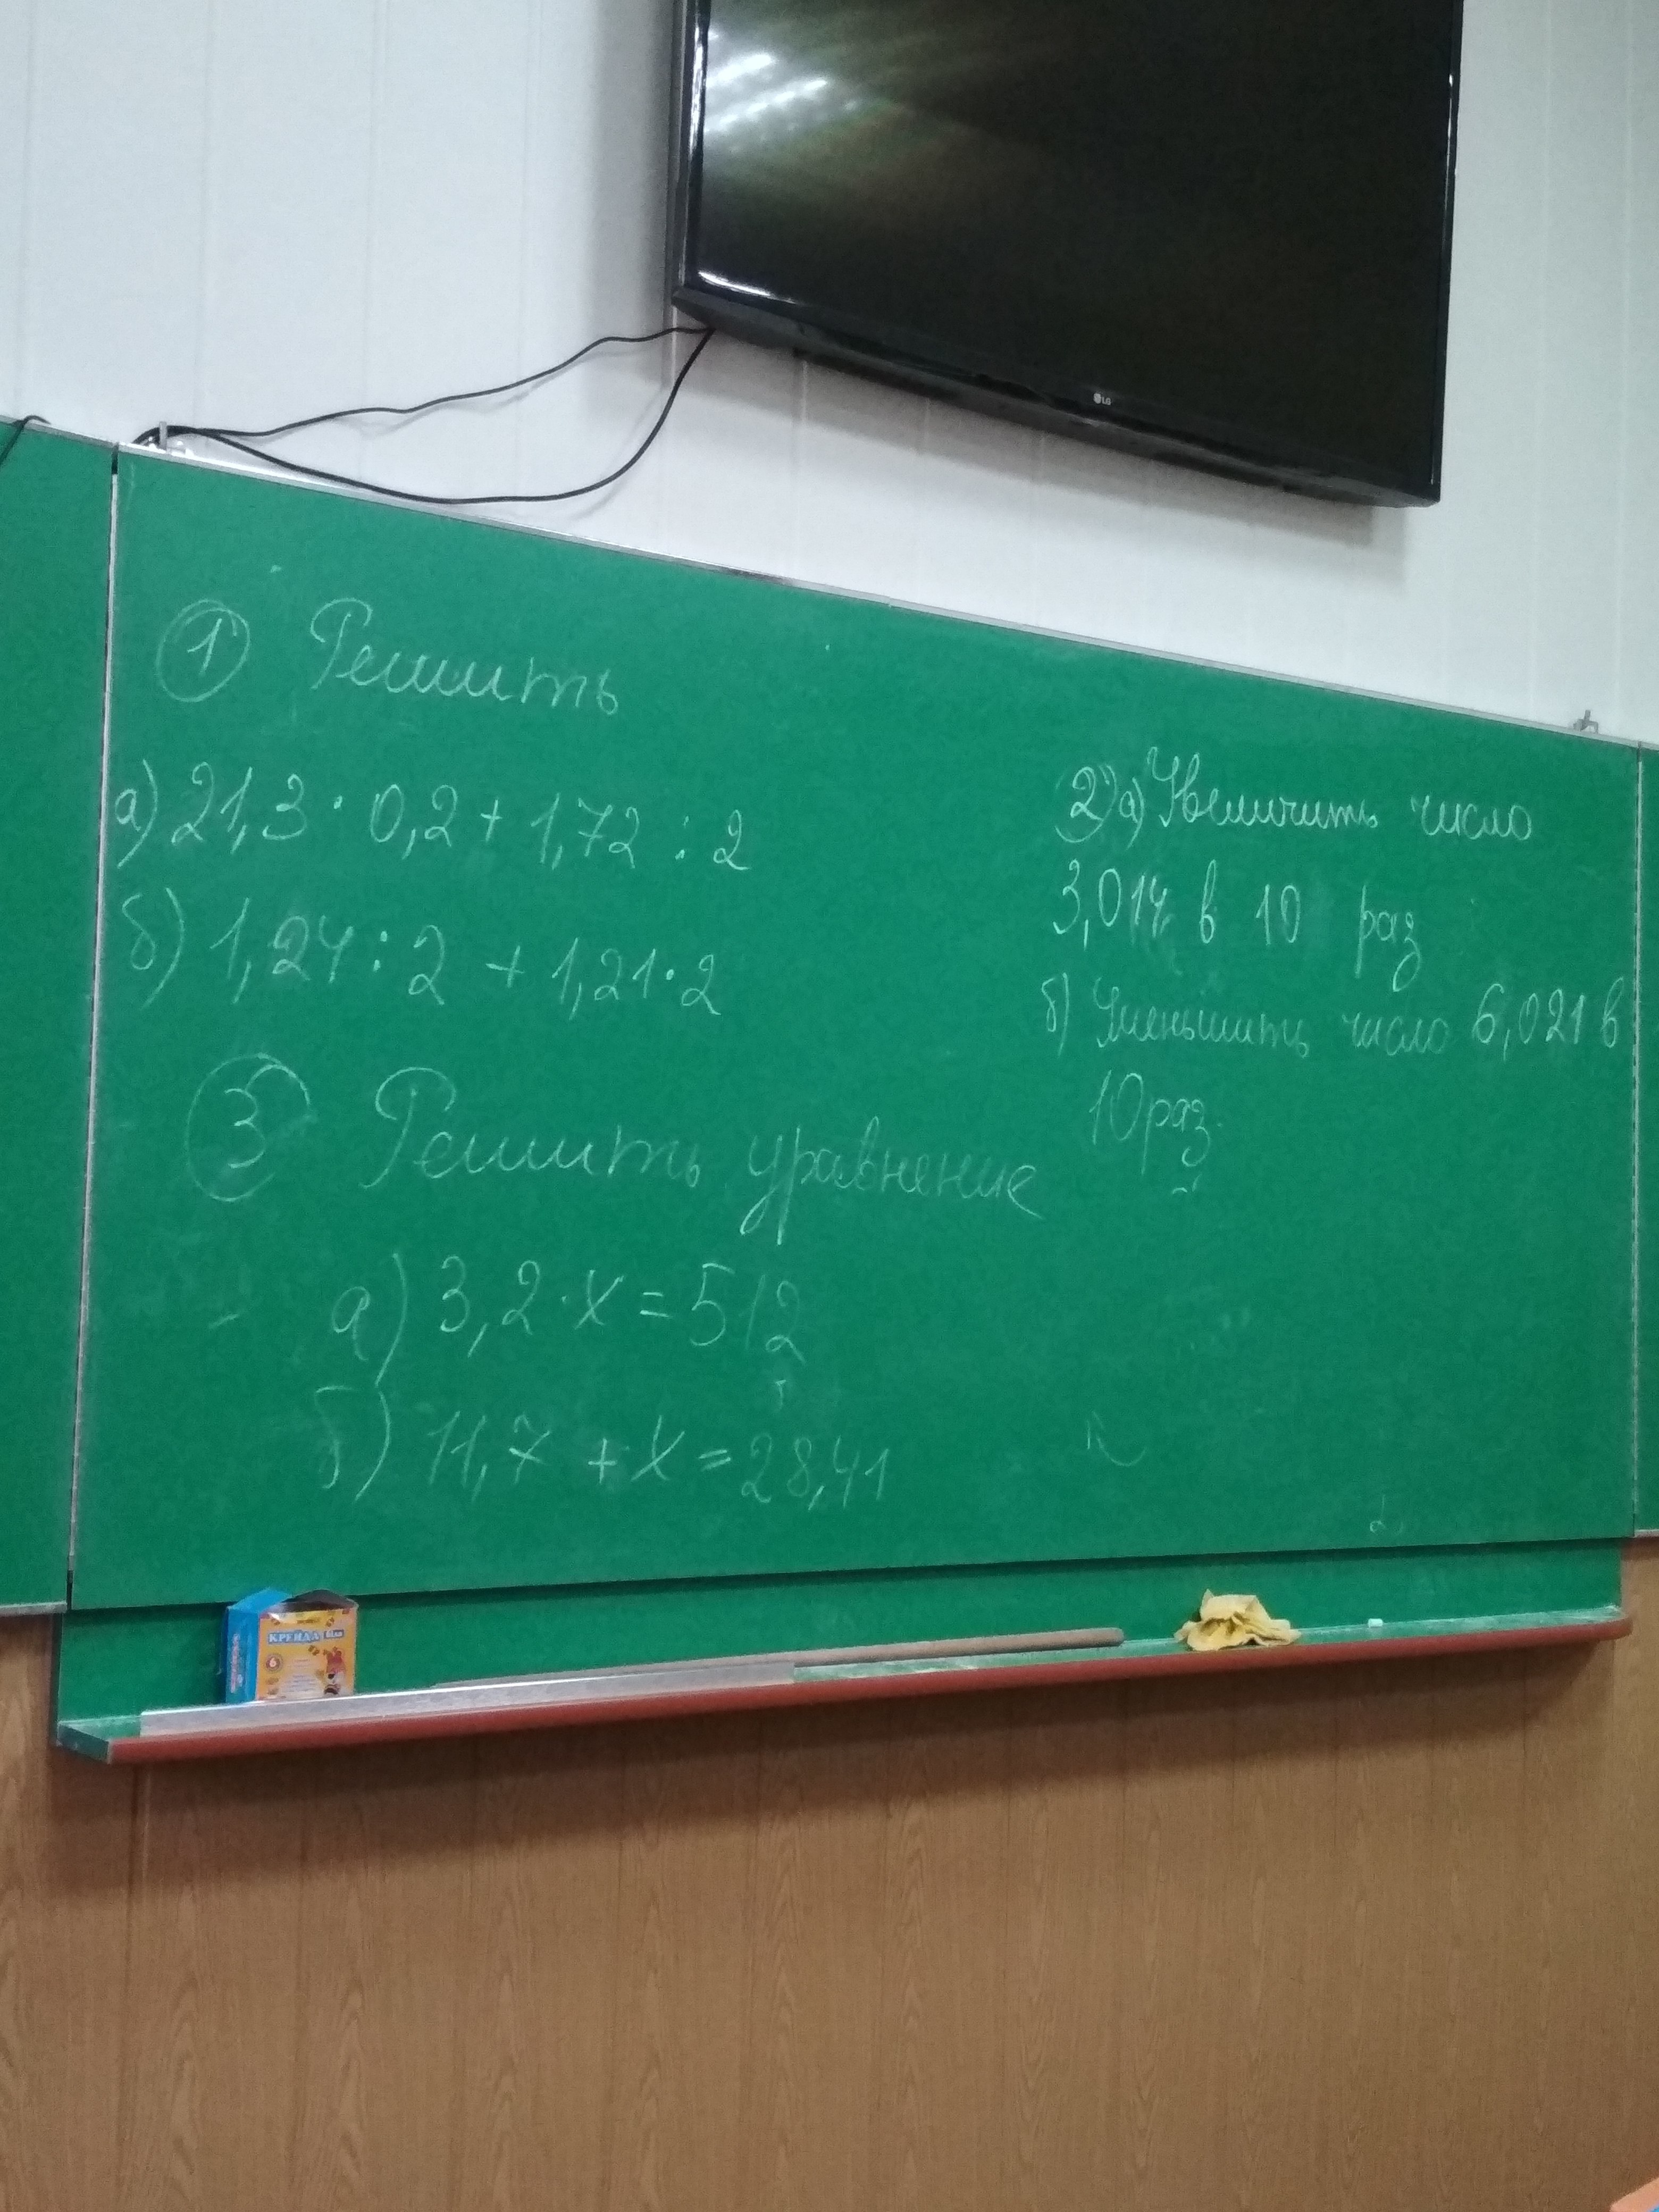 LG
① Решить
а) 21,3 · 0,2 + 1,72 : 2
б) 1,24 : 2 + 1,21 · 2
② а) Увеличить число
3,014 в 10 раз
б) Уменьшить число 6,021 в
10 раз.
③ Решить уравнение
а) 3,2 · х = 512
б) 11,7 + х = 28,41
КРЕЙДА
6